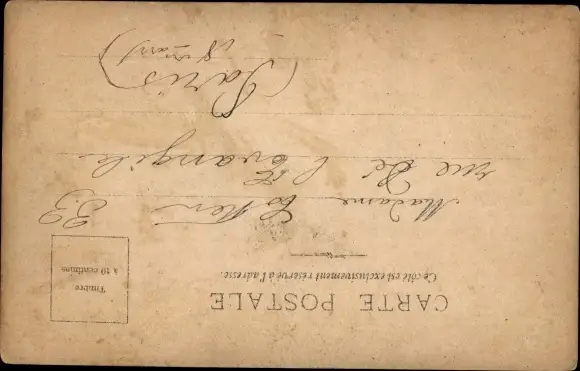 CARTE POSTALE
Ce côté est exclusivement réservé à l'adresse.
Timbre
à 10 centimes
Madame 33
rue de l'Evangile
(Paris
18